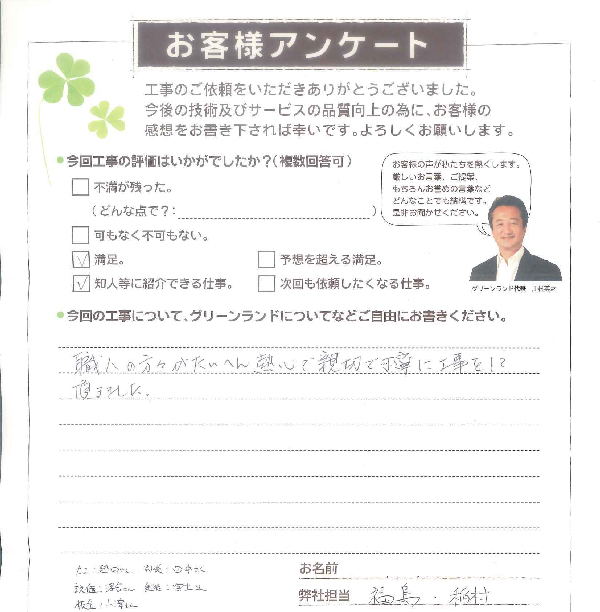 お客様アンケート
工事のご依頼をいただきありがとうございました。
今後の技術及びサービスの品質向上の為に、お客様の
感想をお書き下されば幸いです。よろしくお願いします。
今回工事の評価はいかがでしたか?(複数回答可)
不満が残った。
(どんな点で?:)
可もなく不可もない。
満足。
予想を超える満足。
知人等に紹介できる仕事。
次回も依頼したくなる仕事。
お客様の声が私たちを熱くします。
厳しいお言葉、ご提案、
もちろんお誉めの言葉など
どんなことでも結構です。
是非お聞かせください。
グリーンランド代表
今回の工事について、グリーンランドについてなどご自由にお書きください。
職人の方々がたいへん熱心で親切で丁寧に工事をして
頂きました。
お名前
弊社担当 福島・稲村